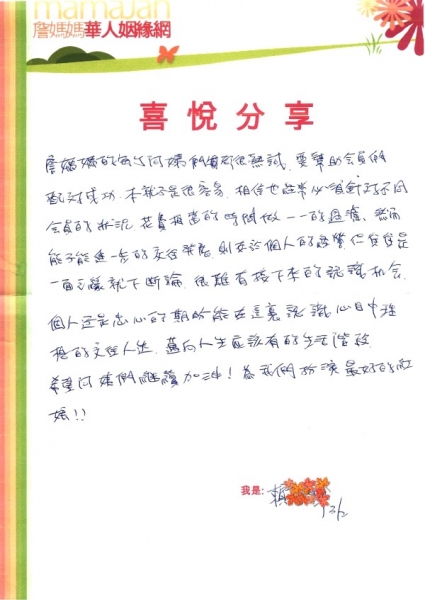 mamaJan
詹媽媽華人姻緣網
喜悅分享
詹媽媽的每位阿姨們真的很熱誠，要幫助會員們
配對成功，本就不是很容易，相信也經常必須針對不同
會員的狀況，花費相當的時間做一一的過濾，然而
能不能進一步的交往
一面之緣就下斷論，很難有接下來的認識機會
個人還是忠心的期盼能在這裏認識心目中理
想的交往人選，邁向人生應該有的生活階段
希望阿姨們繼續加油！為我們扮演最好的紅
娘!!
我是：賴